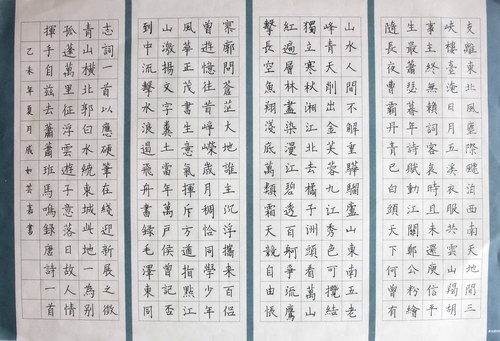 支離東北風塵際飄泊西南天地間三
峽樓臺淹日月五溪衣服共雲山羯胡
事主終無賴詞客哀時且未還庾信平
生最蕭瑟暮年詩賦動江關鄭公粉繪
隨長夜曹霸丹青已白頭天下何曾有
山水人間不解重驊騮廬山東南五老
峰青天削出金芙蓉九江秀色可攬結
獨立寒秋湘江北去橘子洲頭看萬山
紅遍層林盡染漫江碧透百舸爭流鷹
擊長空魚翔淺底萬類霜天競自由悵
寥廓問蒼茫大地誰主沉浮攜來百侶
曾遊憶往昔崢嶸歲月稠恰同學少年
風華正茂書生意氣揮斥方遒指點江
山激揚文字糞土當年萬戶侯曾記否
到中流擊水浪遏飛舟書錄毛澤東同
志詞一首以應硬筆在綫迎新展之徵
青山橫北郭白水繞東城此地一為別
孤蓬萬里征浮雲遊子意落日故人情
揮手自茲去蕭蕭班馬鳴錄唐詩一首
乙未年夏月成如芸嘉書